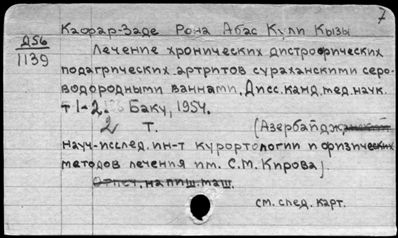 7
Кафар-Заде Рона Абас Кули Кызы
Д56
1139
Лечение хронических дистрофических
подагрических артритов сураханскими серо-
водородными ваннами. Дисс. канд. мед. наук.
т 1-2. Баку, 1954.
2 т.
(Азербайджанский
науч-исслед. ин-т курортологии и физических
методов лечения им. С.М. Кирова).
Отпеч. на пиш. маш.
см. след. карт.